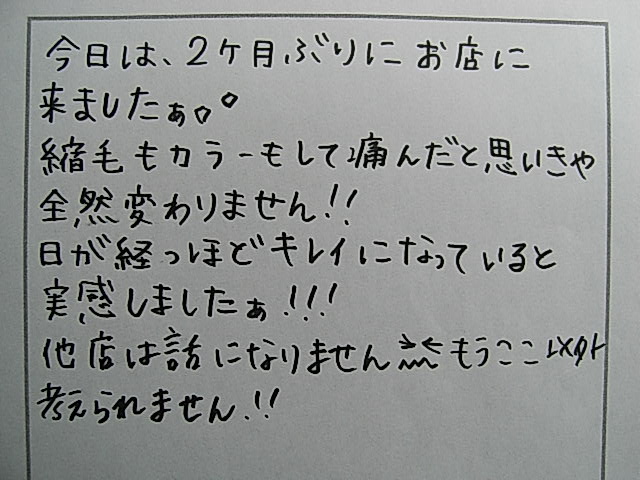 今日は、2ケ月ぶりにお店に
来ましたぁ。°
縮毛もカラーもして痛んだと思いきや
全然変わりません!!
日が経つほどキレイになっていると
実感しましたぁ!!!
他店は話になりません もうここ以外
考えられません!!